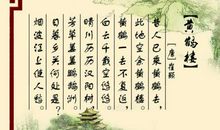 【黄鹤楼】
［唐］崔颢
昔人已乘黄鹤去，
此地空余黄鹤楼。
黄鹤一去不复返，
白云千载空悠悠。
晴川历历汉阳树，
芳草萋萋鹦鹉洲。
日暮乡关何处是？
烟波江上使人愁。